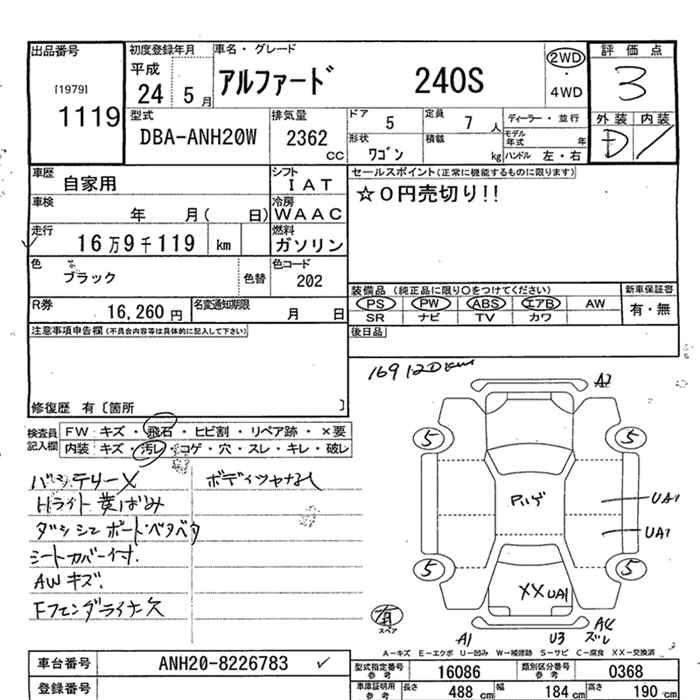 出品番号 初度登録年月 車名・グレード 評価点
[1979] 1119
平成 24 5月
アルファード 240S
2WD
・
4WD
3
型式 排気量 ドア 5 定員 7人 ディーラー・並行 外装 内装
DBA-ANH20W 2362 cc 形状 ワゴン 積載 kg モデル年式 年 ハンドル 左・右 D
車歴 自家用 シフト IAT セールスポイント(正常に機能するものに限ります)
車検 年 月( 日) 冷房 WAAC ☆0円売切り!!
走行 16万9千119 km 燃料 ガソリン
色 ブラック 色替 色コード 202
装備品 (純正品に限り○をつけてください) 新車保証書
R券 16,260円 名変通知期限 月 日
PS PW ABS エアB AW 有・無
SR ナビ TV カワ
注意事項申告欄(不具合内容等は具体的に記入して下さい) 後日品
修復歴 有〔箇所 〕
169120km
検査員記入欄 FW キズ・飛石・ヒビ割・リペア跡・×要
内装 キズ・汚レ・コゲ・穴・スレ・キレ・破レ
バッテリーX ボディツヤなし
Hライト黄ばみ
ダッシュボードベタベタ
シートカバー付.
AWキズ.
Fフェンダライナー欠
A2
5 5
UA1
UA1
5 5
XX UA1
有 スペア
A1 U3 A4 ズレ
A-キズ E-エクボ U-凹み W-補修跡 S-サビ C-腐食 XX-交換済
車台番号 ANH20-8226783
型式指定番号 参考 16086 類別区分番号 参考 0368
登録番号 車庫証明用 参考 長さ 488 cm 幅 184 cm 高さ 190 cm